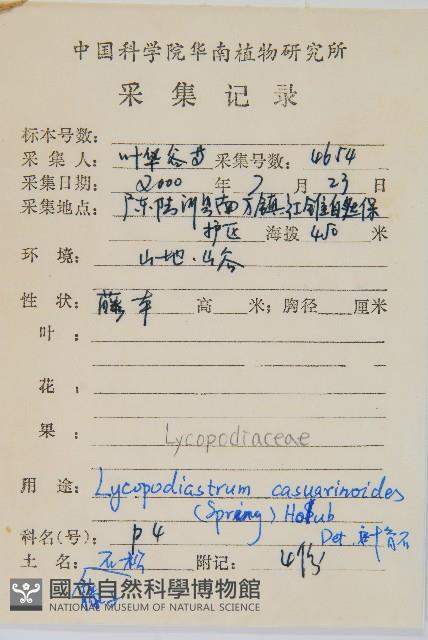 中国科学院华南植物研究所
采集记录
标本号数:
采集人: 叶华谷等 采集号数: 4654
采集日期: 2000 年 7 月 23 日
采集地点: 广东.陆河县南万镇.红锥自然保
护区 海拨 450 米
环境: 山地.山谷
性状: 藤本 高 米; 胸径 厘米
叶:
花:
果: Lycopodiaceae
用途: Lycopodiastrum casuarinoides
(Spring) Holub
科名(号): P4 Det 叶育石
土名: 石松 附记: 4份
國立自然科學博物館
NATIONAL MUSEUM OF NATURAL SCIENCE